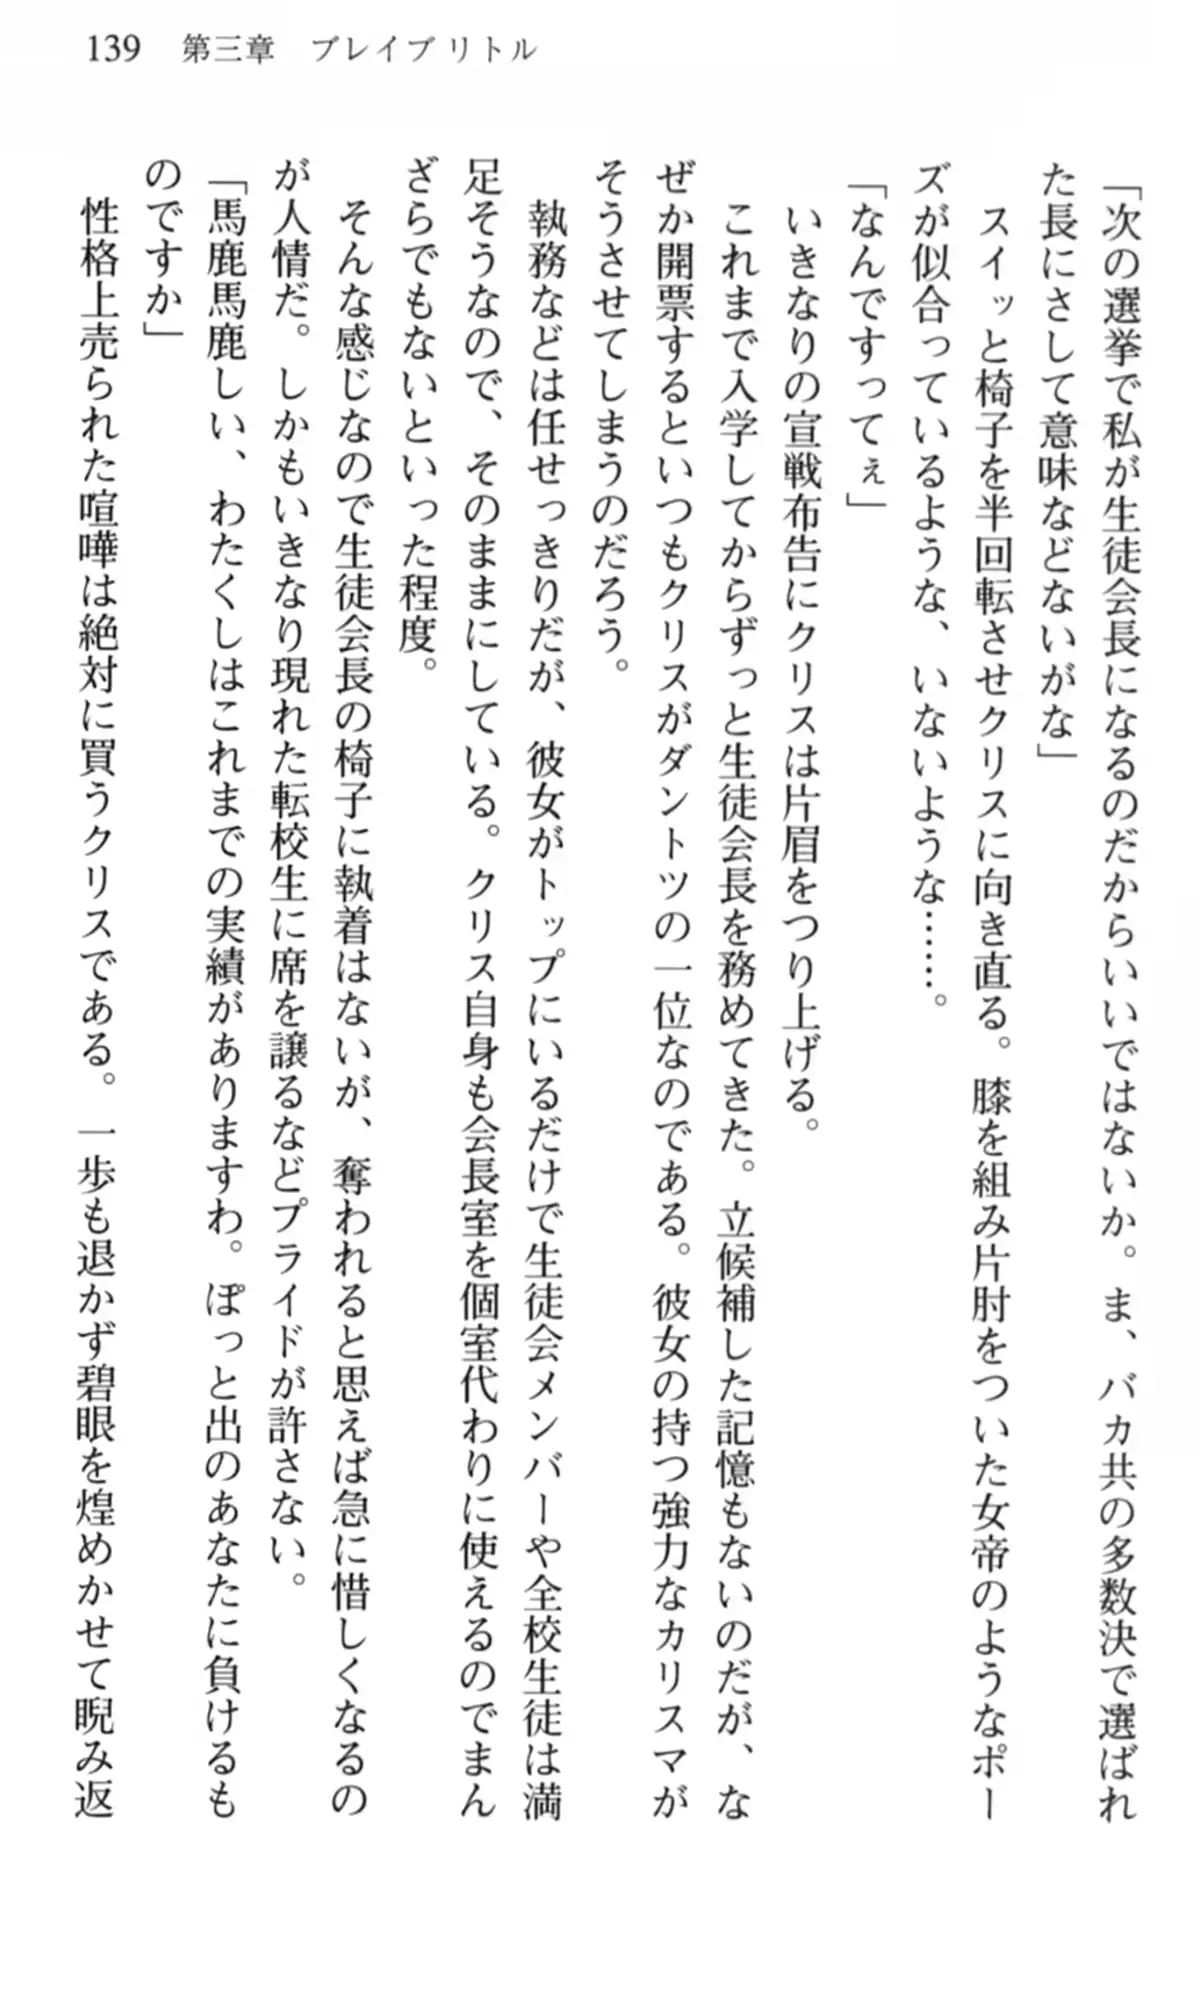 139　第三章　ブレイブ リトル
「次の選挙で私が生徒会長になるのだからいいではないか。ま、バカ共の多数決で選ばれ
た長にさして意味などないがな」
　スイッと椅子を半回転させクリスに向き直る。膝を組み片肘をついた女帝のようなポー
ズが似合っているような、いないような……。
「なんですってぇ」
　いきなりの宣戦布告にクリスは片眉をつり上げる。
　これまで入学してからずっと生徒会長を務めてきた。立候補した記憶もないのだが、な
ぜか開票するといつもクリスがダントツの一位なのである。彼女の持つ強力なカリスマが
そうさせてしまうのだろう。
　執務などは任せっきりだが、彼女がトップにいるだけで生徒会メンバーや全校生徒は満
足そうなので、そのままにしている。クリス自身も会長室を個室代わりに使えるのでまん
ざらでもないといった程度。
　そんな感じなので生徒会長の椅子に執着はないが、奪われると思えば急に惜しくなるの
が人情だ。しかもいきなり現れた転校生に席を譲るなどプライドが許さない。
「馬鹿馬鹿しい、わたくしはこれまでの実績がありますわ。ぽっと出のあなたに負けるも
のですか」
　性格上売られた喧嘩は絶対に買うクリスである。一歩も退かず碧眼を煌めかせて睨み返